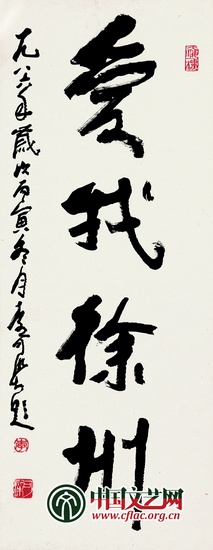 爱我徐州
一九八六年岁次丙寅冬月李可染题
中国文艺网
www.cflac.org.cn